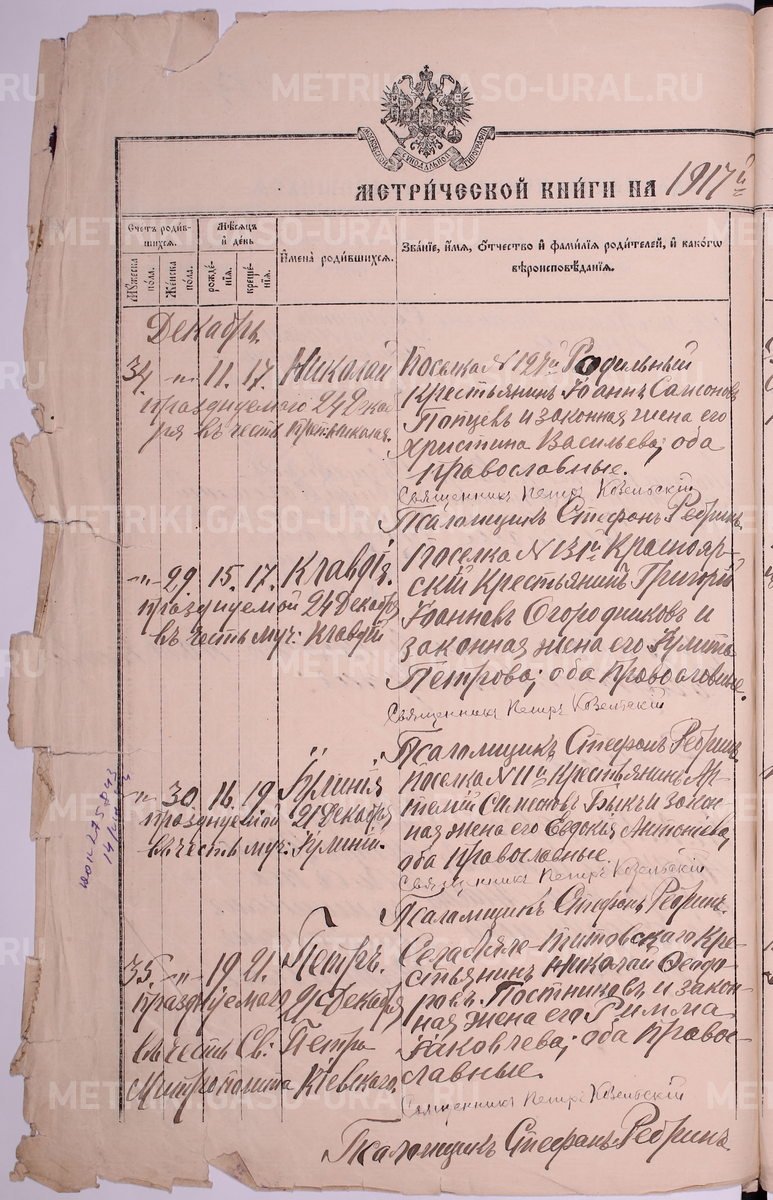 METRIKI.GASO-URAL.RU
МОСКОВСКОЙ СѴНОДАЛЬНОЙ ТИПОГРАФІИ
МЕТРИЧЕСКОЙ КНИГИ НА 1917й
Счетъ родившихся.
Мѣсяцъ и день
Имена родившихся.
Званіе, имя, отчество и фамилія родителей, и какого вѣроисповѣданія.
Мужеска пола.
Женска пола.
рожденія.
крещенія.
Декабрь.
34. " 11. 17. Николай
празднуемого 24 Декабря въ честь прав. Николая.
Поселка N 121й Родильный
Крестьянинъ Іоаннъ Самсоновъ
Попцевъ и законная жена его
Христина Васильева; оба
православные.
Священникъ Петръ Козельскій
Псаломщикъ Стефанъ Ребринъ.
" 29. 15. 17. Клавдія.
празднуемой 24 Декабря
въ честь муч: Клавдіи
Поселка N 131й Краснояр-
скій Крестьянинъ Григорій
Іоанновъ Огородниковъ и
законная жена его Іулита
Петрова; оба православные.
Священникъ Петръ Козельскій
Псаломщикъ Стефанъ Ребринъ
" 30. 16. 19. Іулинія
празднуемой 21 Декабря
въ честь муч: Іулиніи.
Поселка N 11й Крестьянинъ Ар-
темій Симоновъ Быкъ и закон-
ная жена его Евдокія Антоніева,
оба православные.
Священникъ Петръ Козельскій
Псаломщикъ Стефанъ Ребринъ.
35. " 19 21. Петръ.
празднуемаго 21 Декабря
въ честь Св: Петра
Митрополита Кіевскаго.
Крестьянинъ Николай Феодо-
ровъ Постниковъ и закон-
ная жена его Римма
Іаковлева; оба Право-
славные.
Священникъ Петръ Козельскій
Псаломщикъ Стефанъ Ребринъ.